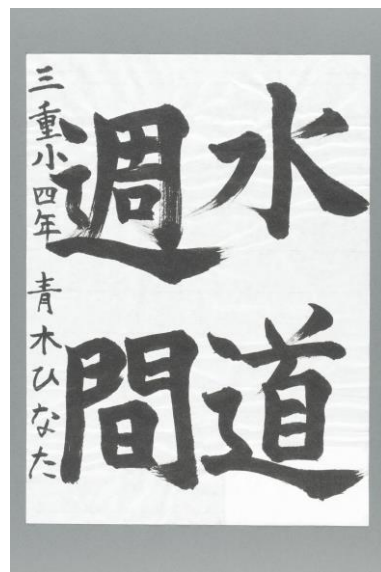 水道
週間
三重小四年 青木ひなた